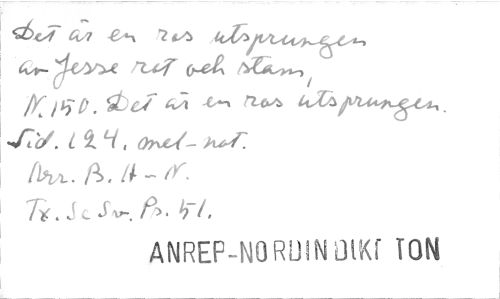 Det är en ros utsprungen
av Jesse rot och stam,
N. 150. Det är en ros utsprungen.
Sid. 124. mel-not.
Arr. B. H-N.
Tx. Se Sv. Ps. 51.
ANREP-NORDIN DIKT TON